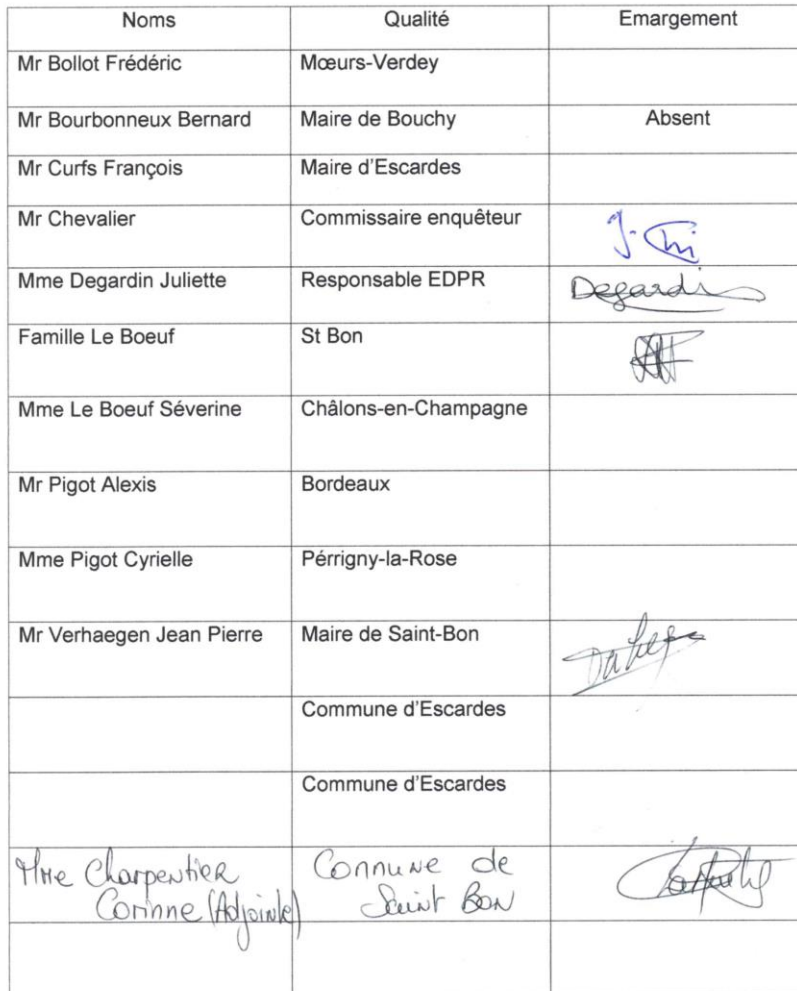 Noms Qualité Emargement
Mr Bollot Frédéric Mœurs-Verdey
Mr Bourbonneux Bernard Maire de Bouchy Absent
Mr Curfs François Maire d'Escardes
Mr Chevalier Commissaire enquêteur
Mme Degardin Juliette Responsable EDPR Degardin
Famille Le Boeuf St Bon
Mme Le Boeuf Séverine Châlons-en-Champagne
Mr Pigot Alexis Bordeaux
Mme Pigot Cyrielle Pérrigny-la-Rose
Mr Verhaegen Jean Pierre Maire de Saint-Bon
Commune d'Escardes
Commune d'Escardes
Mme Charpentier Commune de
Corinne (Adjointe) Saint Bon